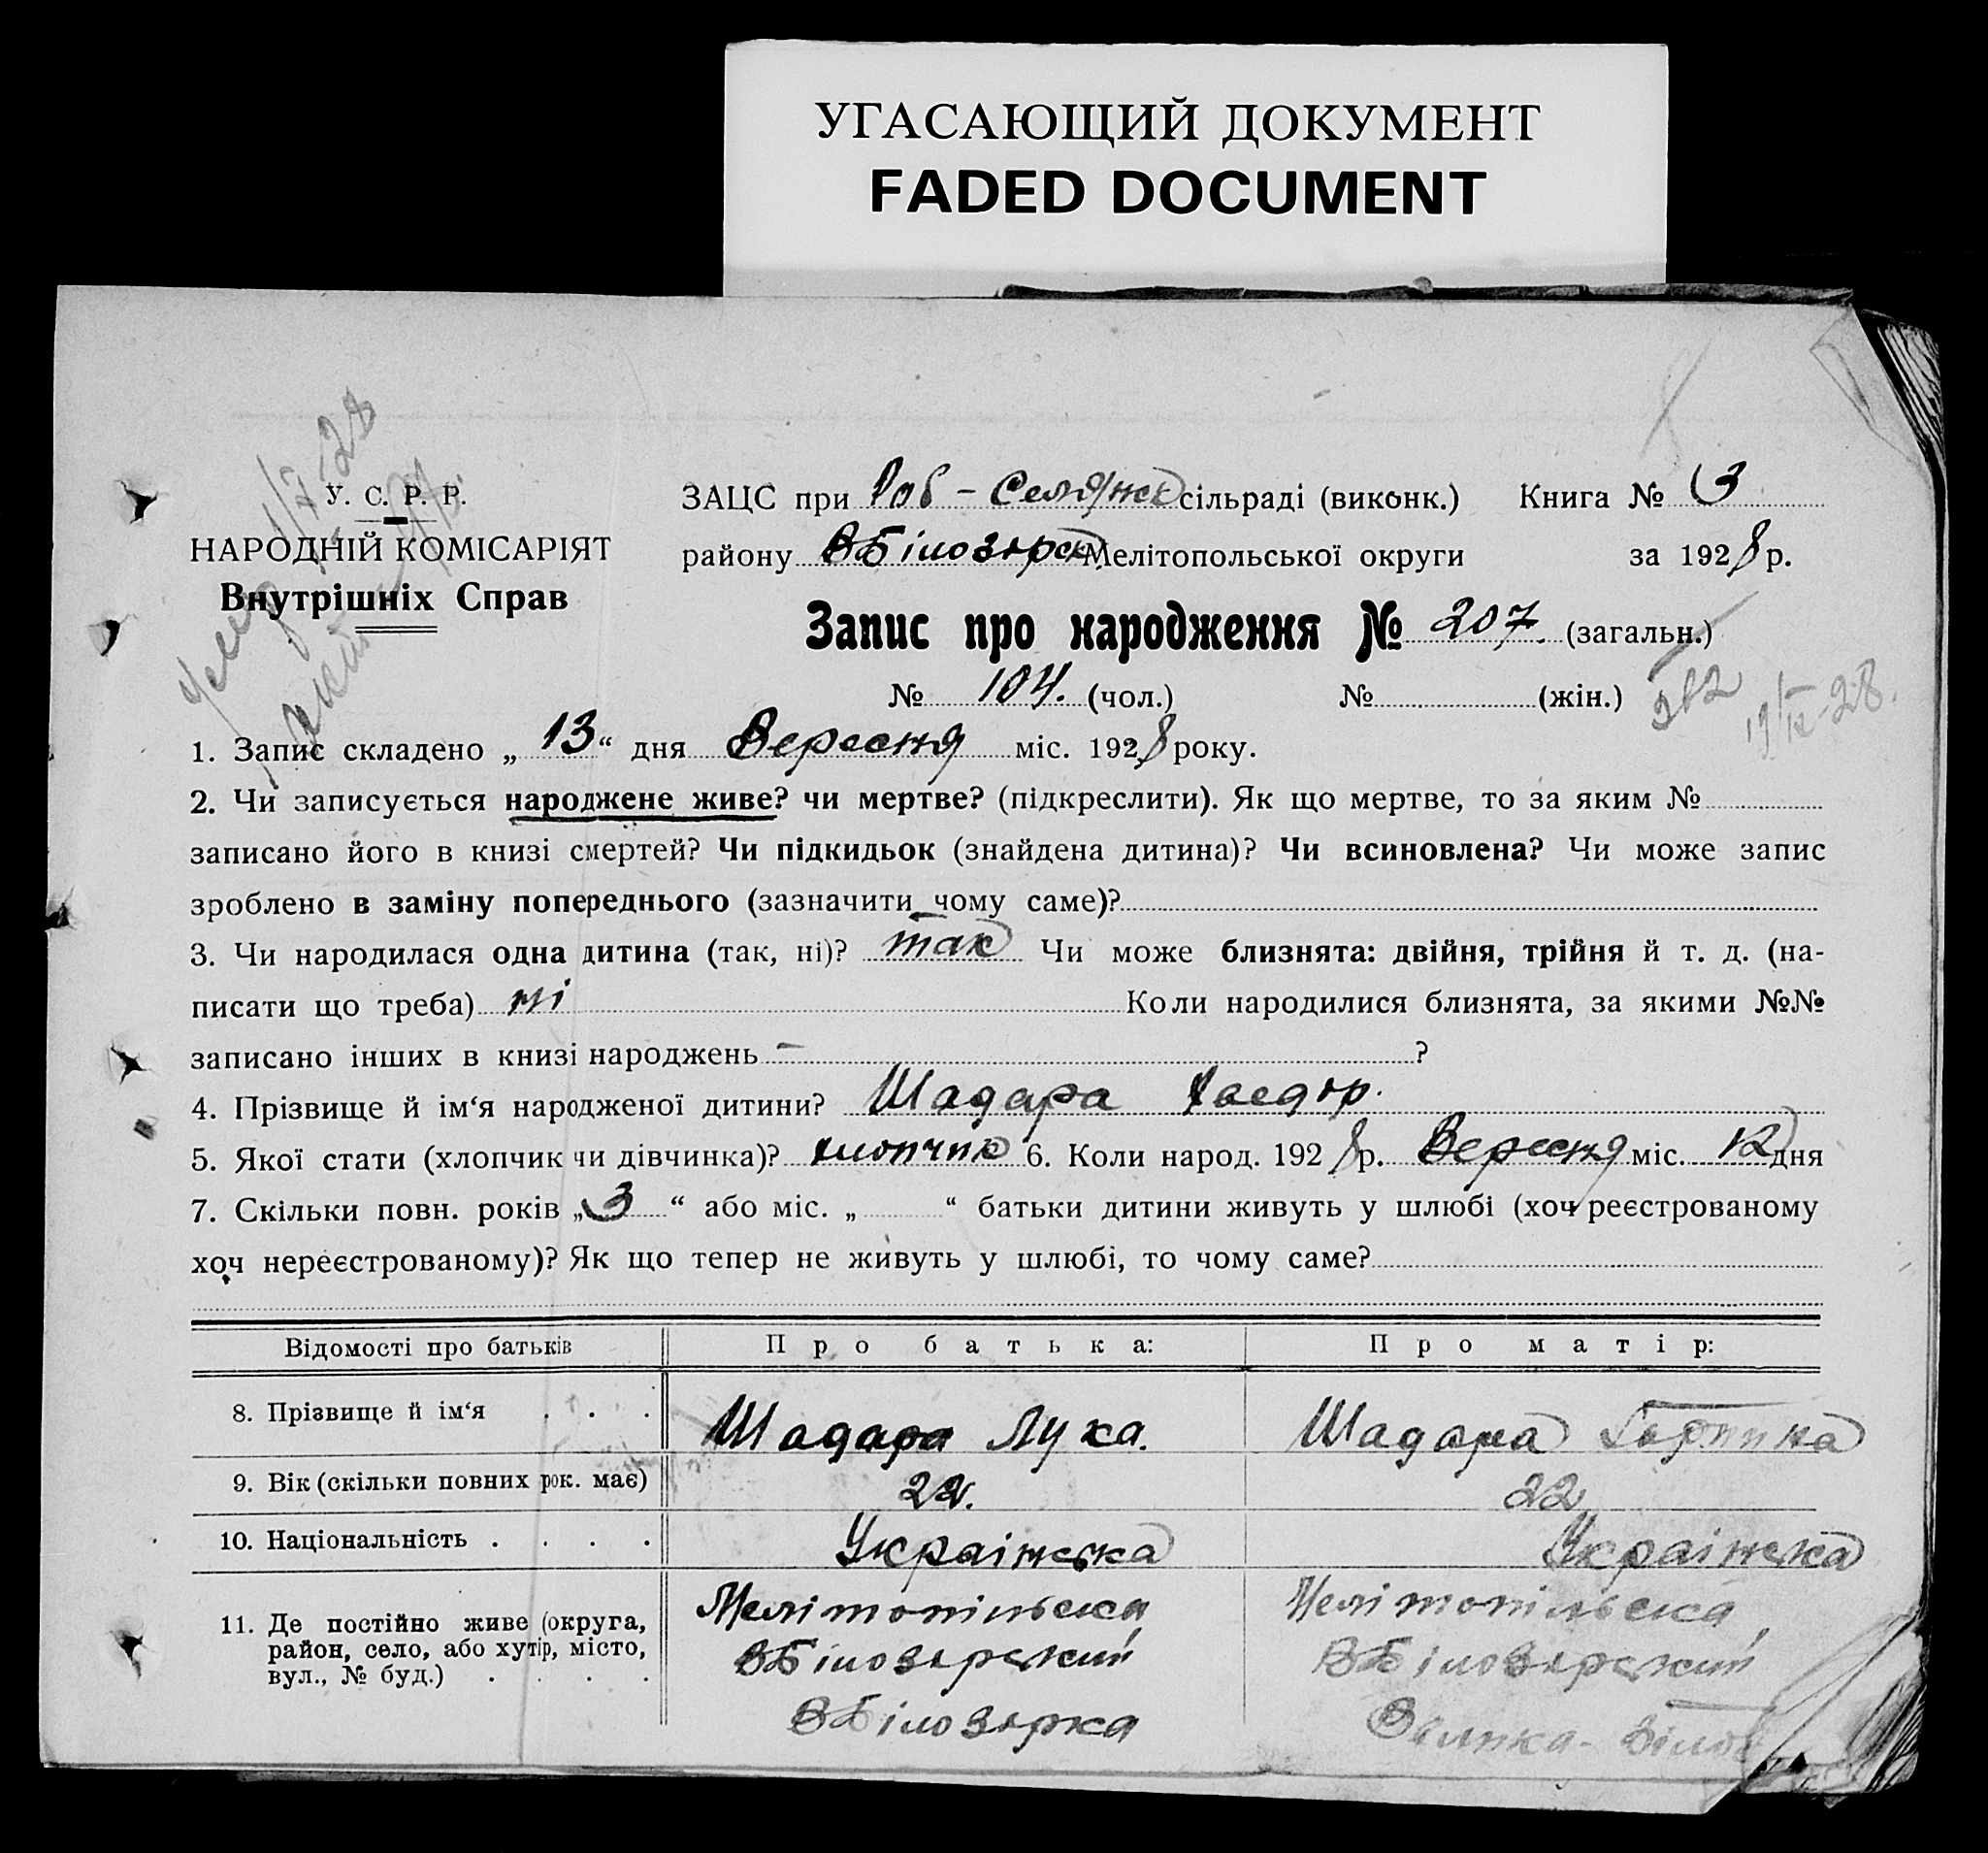 УГАСАЮЩИЙ ДОКУМЕНТ
FADED DOCUMENT
У. С. Р. Р.
НАРОДНІЙ КОМІСАРІЯТ
Внутрішніх Справ
ЗАЦС при Роб - Селянск сільраді (виконк.) Книга № 3
району ВБілозерск Мелітопольської округи за 1928 р.
Запис про народження № 207. (загальн.)
№ 104. (чол.) № (жін.)
1. Запис складено „ 13 “ дня Вересня міс. 1928 року.
2. Чи записується народжене живе? чи мертве? (підкреслити). Як що мертве, то за яким №
записано його в книзі смертей? Чи підкидьок (знайдена дитина)? Чи всиновлена? Чи може запис
зроблено в заміну попереднього (зазначити чому саме)?
3. Чи народилася одна дитина (так, ні)? так Чи може близнята: двійня, трійня й т. д. (на-
писати що треба) ні Коли народилися близнята, за якими №№
записано інших в книзі народжень – ?
4. Прізвище й ім‘я народженої дитини? Шадара
5. Якої стати (хлопчик чи дівчинка)? хлопчик 6. Коли народ. 1928 р. Вересня міс. 12 дня
7. Скільки повн. років „ 3 “ або міс. „ “ батьки дитини живуть у шлюбі (хоч реєстрованому
хоч нереєстрованому)? Як що тепер не живуть у шлюбі, то чому саме?
Відомості про батьків Про батька: Про матір:
8. Прізвище й ім‘я . . . Шадара Лука. Шадара Горпина
9. Вік (скільки повних рок. має) 22. 22
10. Національність . . . . Українська Українська
11. Де постійно живе (округа, Мелітопільска Мелітопільска
район, село, або хутір, місто, ВБілозерський ВБілозерський
вул., № буд.) . . . . ВБілозерка Велика-Біло